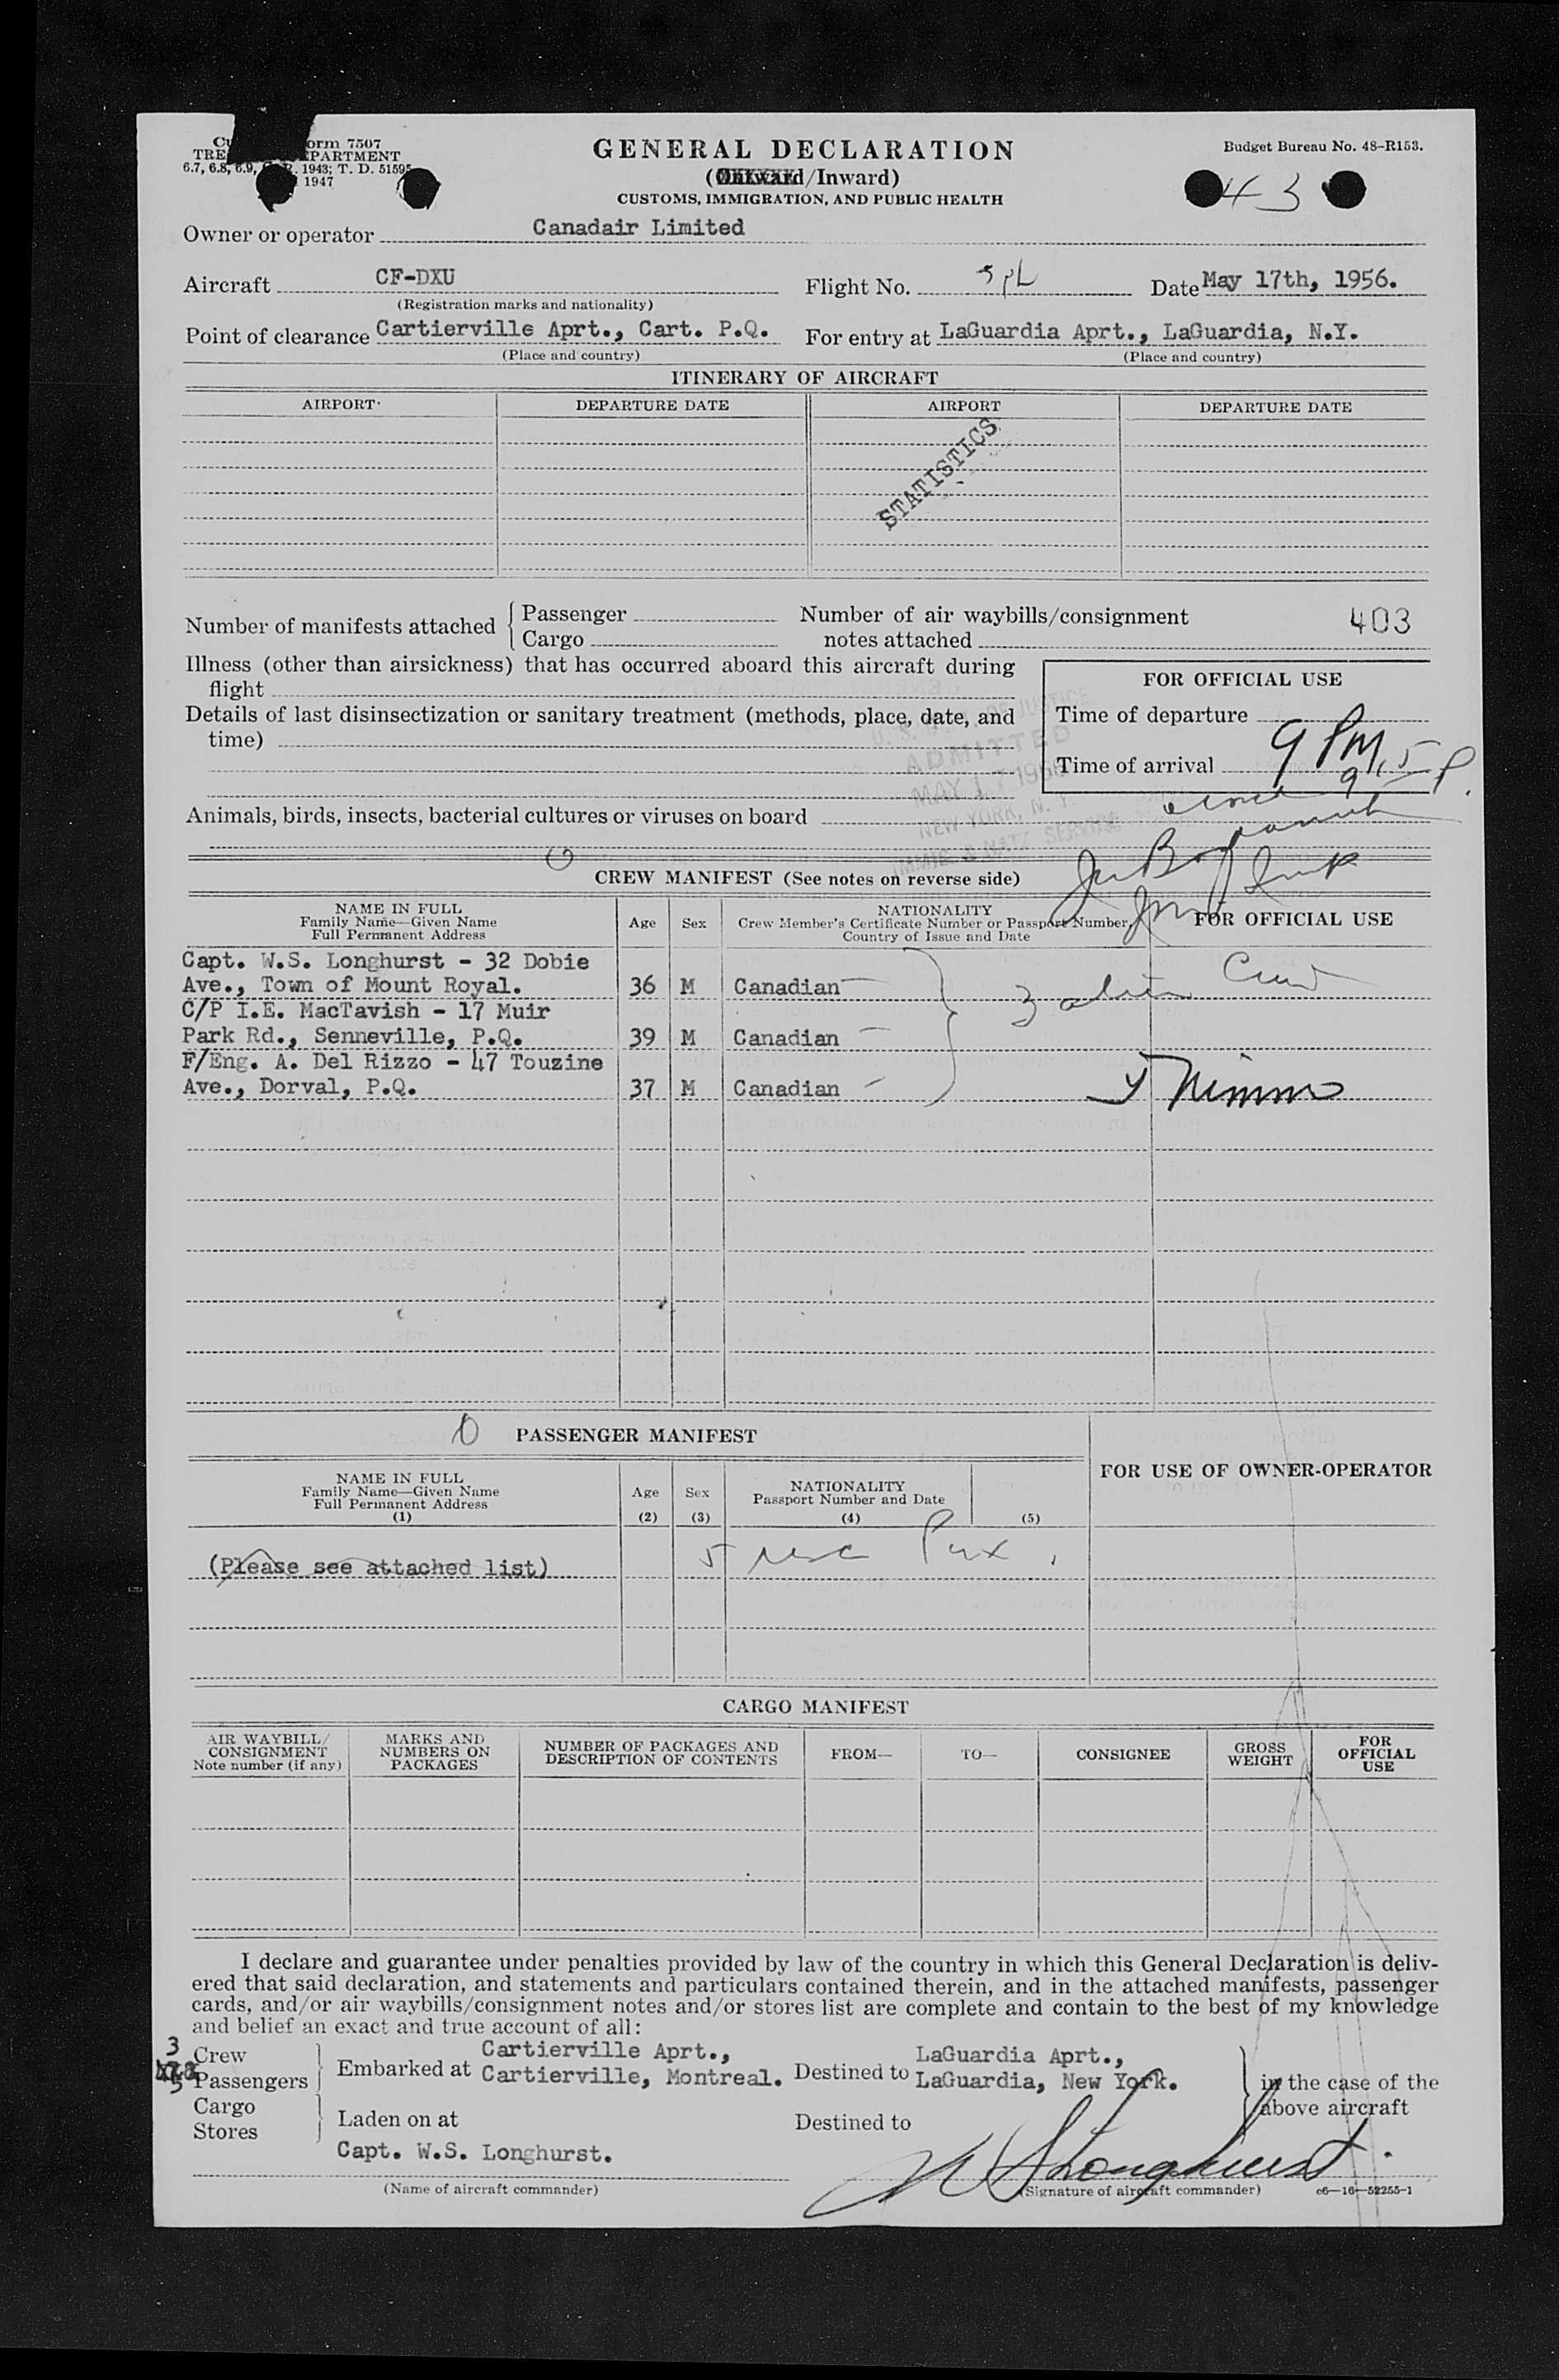 orm 7507
TRE PARTMENT
6.7, 6.8, 6.9, 1943; T. D. 51595
1947
GENERAL DECLARATION
(Outward/Inward)
CUSTOMS, IMMIGRATION, AND PUBLIC HEALTH
Budget Bureau No. 48-R153.
43
Owner or operator Canadair Limited
Aircraft CF-DXU Flight No. SpL Date May 17th, 1956.
(Registration marks and nationality)
Point of clearance Cartierville Aprt., Cart. P.Q. For entry at LaGuardia Aprt., LaGuardia, N.Y.
(Place and country) (Place and country)
ITINERARY OF AIRCRAFT
AIRPORT DEPARTURE DATE AIRPORT DEPARTURE DATE
STATISTICS
Number of manifests attached { Passenger Number of air waybills/consignment 403
Cargo notes attached
Illness (other than airsickness) that has occurred aboard this aircraft during
flight
FOR OFFICIAL USE
Details of last disinsectization or sanitary treatment (methods, place, date, and
time)
Time of departure
Time of arrival 9 PM
ADMITTED
MAY 17 1956
NEW YORK, N. Y.
Animals, birds, insects, bacterial cultures or viruses on board
CREW MANIFEST (See notes on reverse side)
NAME IN FULL
Family Name—Given Name
Full Permanent Address
Age Sex
NATIONALITY
Crew Member's Certificate Number or Passport Number,
Country of Issue and Date
FOR OFFICIAL USE
Capt. W.S. Longhurst - 32 Dobie
Ave., Town of Mount Royal. 36 M Canadian
3 alien Crew
C/P I.E. MacTavish - 17 Muir
Park Rd., Senneville, P.Q. 39 M Canadian
F/Eng. A. Del Rizzo - 47 Touzine
Ave., Dorval, P.Q. 37 M Canadian
0 PASSENGER MANIFEST
FOR USE OF OWNER-OPERATOR
NAME IN FULL
Family Name—Given Name
Full Permanent Address
(1)
Age
(2)
Sex
(3)
NATIONALITY
Passport Number and Date
(4) (5)
(Please see attached list) 5 Pax.
CARGO MANIFEST
AIR WAYBILL/
CONSIGNMENT
Note number (if any)
MARKS AND
NUMBERS ON
PACKAGES
NUMBER OF PACKAGES AND
DESCRIPTION OF CONTENTS
FROM— TO— CONSIGNEE
GROSS
WEIGHT
FOR
OFFICIAL
USE
I declare and guarantee under penalties provided by law of the country in which this General Declaration is deliv-
ered that said declaration, and statements and particulars contained therein, and in the attached manifests, passenger
cards, and/or air waybills/consignment notes and/or stores list are complete and contain to the best of my knowledge
and belief an exact and true account of all:
3 Crew
5 Passengers
Embarked at Cartierville Aprt.,
Cartierville, Montreal.
Destined to LaGuardia Aprt.,
LaGuardia, New York.
in the case of the
above aircraft
Cargo
Stores
Laden on at Destined to
Capt. W.S. Longhurst. W S Longhurst.
(Name of aircraft commander) (Signature of aircraft commander) c6—16—52255-1